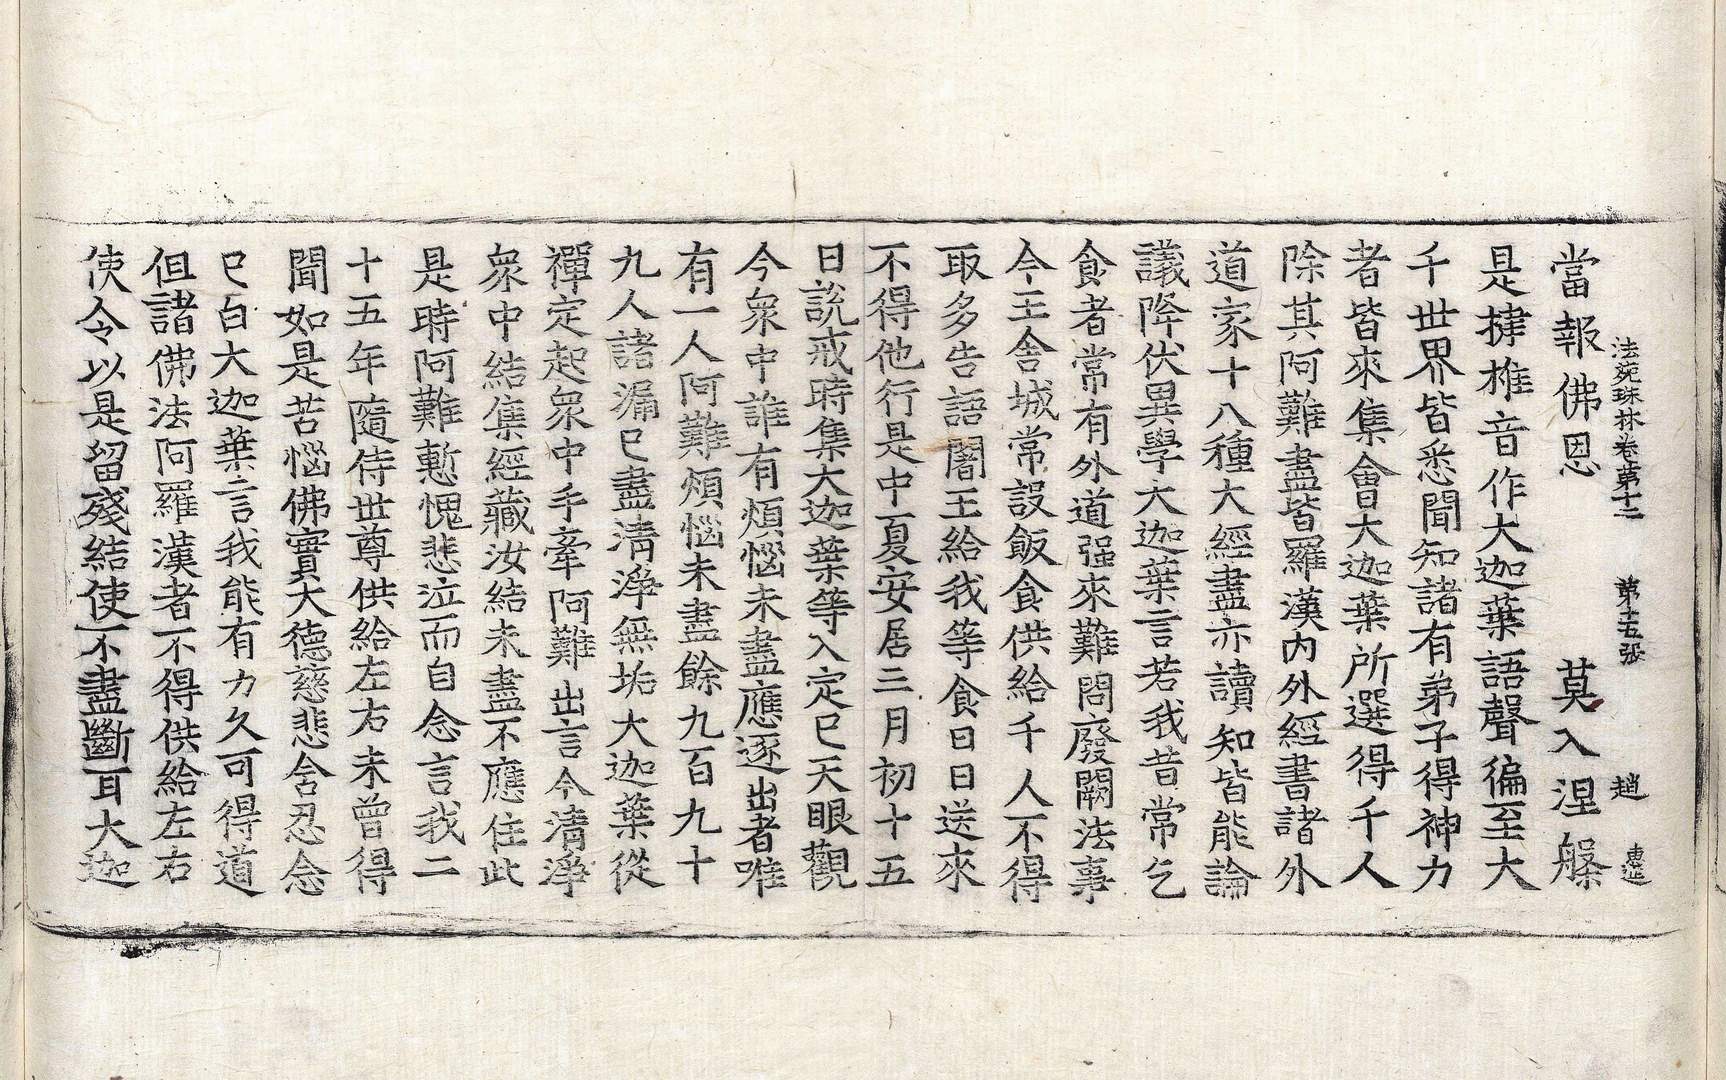 法苑珠林卷第十二 第十五張 趙
當報佛恩 莫入涅槃
是揵椎音作大迦葉語聲徧至大
千世界皆悉聞知諸有弟子得神力
者皆來集會大迦葉所選得千人
除其阿難盡皆羅漢內外經書諸外
道家十八種大經盡亦讀知皆能論
議降伏異學大迦葉言若我昔常乞
食者常有外道强來難問廢闕法事
今王舍城常設飯食供給千人不得
取多告語闍王給我等食日日送來
不得他行是中夏安居三月初十五
日說戒時集大迦葉等入定已天眼觀
今衆中誰有煩惱未盡應逐出者唯
有一人阿難煩惱未盡餘九百九十
九人諸漏已盡清淨無垢大迦葉從
禪定起衆中手牽阿難出言今清淨
衆中結集經藏汝結未盡不應住此
是時阿難慙愧悲泣而自念言我二
十五年隨侍世尊供給左右未曾得
聞如是苦惱佛實大德慈悲含忍念
已白大迦葉言我能有力久可得道
但諸佛法阿羅漢者不得供給左右
使令以是留殘結使不盡斷耳大迦